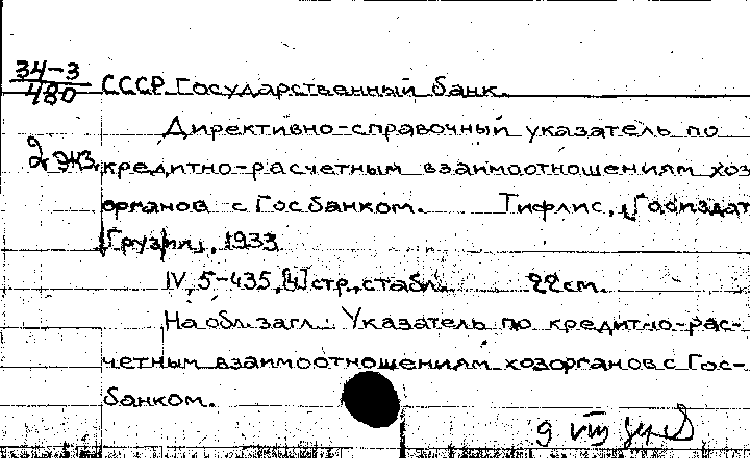 34-3
480
СССР. Государственный банк.
Директивно-справочный указатель по
2 экз. кредитно-расчетным взаимоотношениям хоз
органов с Госбанком. Тифлис, Госиздат
Грузии, 1933
IV, 5-435, стр., с табл. 22 cm.
На обл. загл.: Указатель по кредитно-рас-
четным взаимоотношениям хозорганов с Гос-
банком.
9 VIII